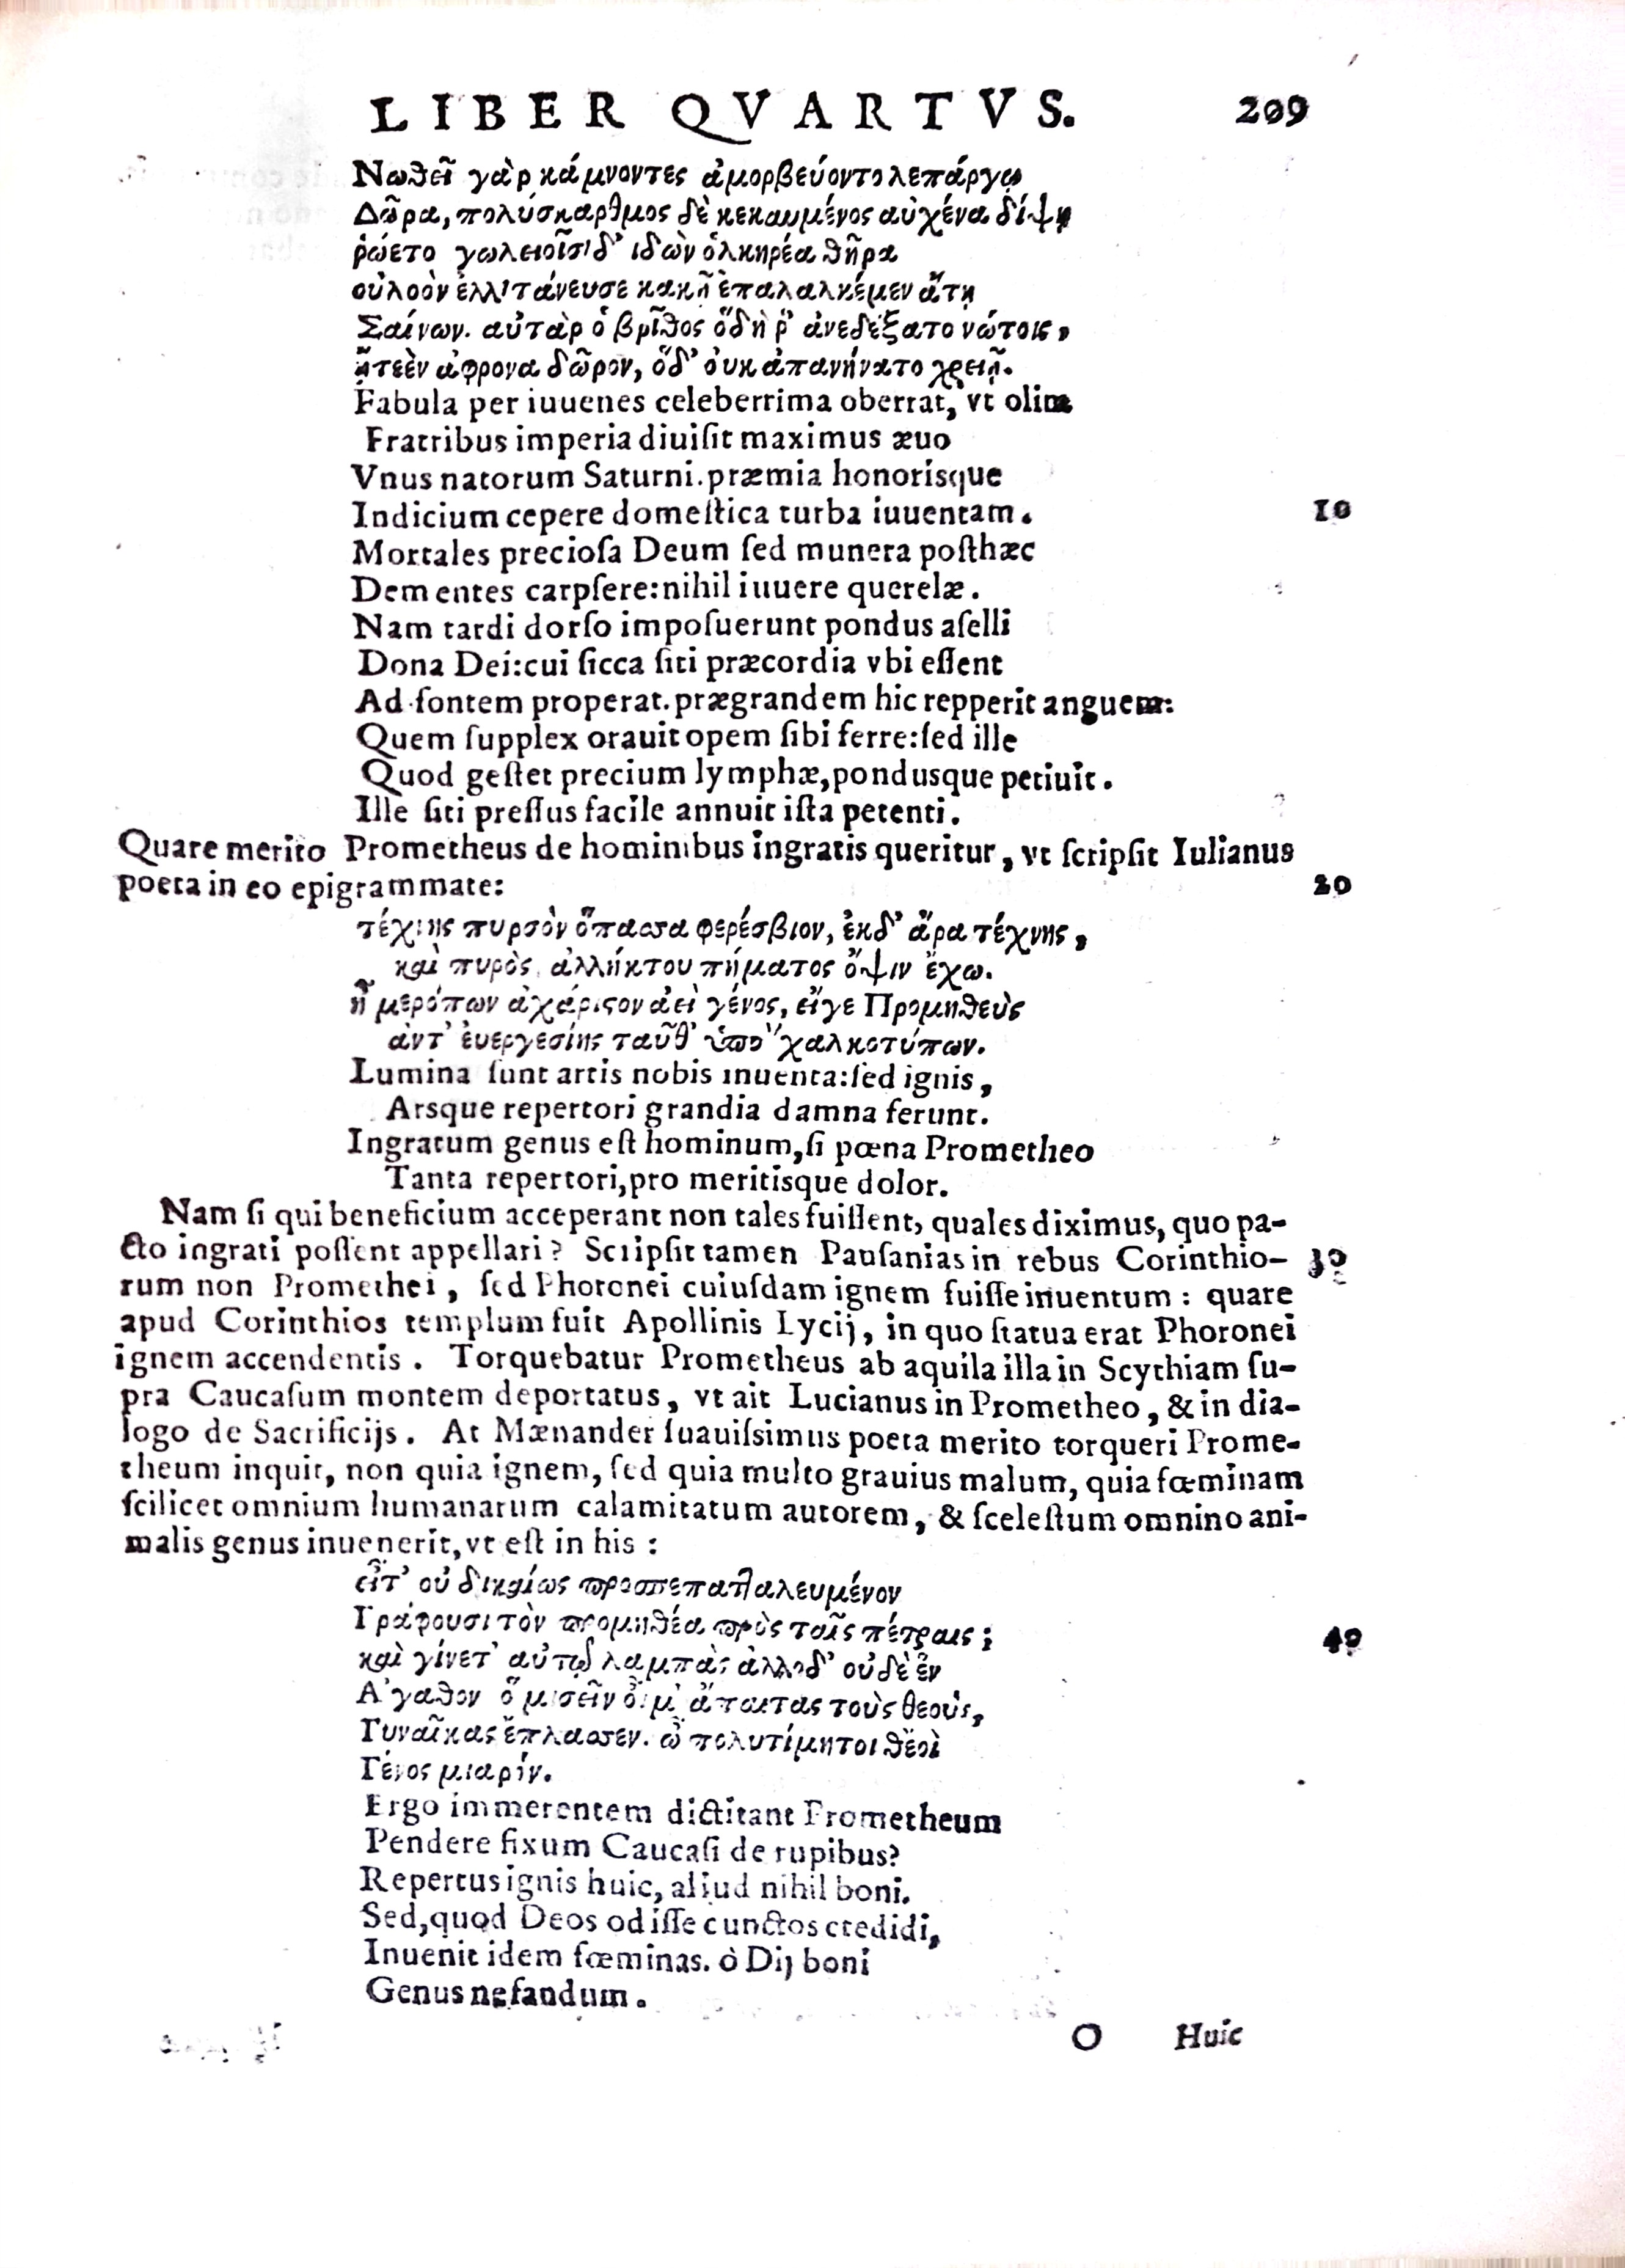 LIBER QVARTVS. 209
Νωθεῖ γὰρ κάμνοντες ἀμορβεύοντο λεπάργῳ
Δῶρα, πολύσκαρθμος δὲ κεκαυμένος αὐχένα δίψῃ
ῥώετο γωλειοῖσι δ' ἰδὼν ὁλκηρέα θῆρα
οὐλοὸν ἐλλιτάνευσε κακῇ ἐπαλαλκέμεν ἄτῃ
Σαίνων. αὐτὰρ ὁ βρῖθος ὅδή ῥ' ἀνεδέξατο νώτοις,
ᾔτεεν ἄφρονα δῶρον, ὅδ' οὐκ ἀπανήνατο χρειῇ.
Fabula per iuuenes celeberrima oberrat, vt olim
Fratribus imperia diuiſit maximus æuo
Vnus natorum Saturni. præmia honorisque
Indicium cepere domeſtica turba iuuentam. 10
Mortales precioſa Deum ſed munera poſthæc
Dementes carpſere: nihil iuuere querelæ.
Nam tardi dorſo impoſuerunt pondus aſelli
Dona Dei: cui ſicca ſiti præcordia vbi eſſent
Ad fontem properat. prægrandem hic repperit anguem:
Quem ſupplex orauit opem ſibi ferre: ſed ille
Quod geſtet precium lymphæ, pondusque petiuit.
Ille ſiti preſſus facile annuit iſta petenti.
Quare merito Prometheus de hominibus ingratis queritur, vt ſcripſit Iulianus
poeta in eo epigrammate: 20
τέχνης πυρσὸν ὄπασσα φερέσβιον, ἐκδ' ἄρα τέχνης,
καὶ πυρὸς ἀλλήκτου πήματος ὄψιν ἔχω.
ἦ μερόπων ἀχάριστον ἀεὶ γένος, εἴγε Προμηθεὺς
ἀντ' ἐυεργεσίης ταῦθ' ὑπὸ χαλκοτύπων.
Lumina ſunt artis nobis inuenta: ſed ignis,
Arsque repertori grandia damna ferunt.
Ingratum genus eſt hominum, ſi pœna Prometheo
Tanta repertori, pro meritisque dolor.
Nam ſi qui beneficium acceperant non tales fuiſſent, quales diximus, quo pa-
cto ingrati poſſent appellari? Scripſit tamen Pauſanias in rebus Corinthio- 30
rum non Promethei, ſed Phoronei cuiuſdam ignem fuiſſe inuentum: quare
apud Corinthios templum fuit Apollinis Lycij, in quo ſtatua erat Phoronei
ignem accendentis. Torquebatur Prometheus ab aquila illa in Scythiam ſu-
pra Caucaſum montem deportatus, vt ait Lucianus in Prometheo, & in dia-
logo de Sacrificijs. At Mænander ſuauiſsimus poeta merito torqueri Prome-
theum inquit, non quia ignem, ſed quia multo grauius malum, quia fœminam
ſcilicet omnium humanarum calamitatum autorem, & ſceleſtum omnino ani-
malis genus inuenerit, vt eſt in his:
εἶτ' οὐ δικαίως προσπεπατλαλευμένον
Γράφουσι τὸν προμηθέα πρὸς ταῖς πέτραις; 40
καὶ γίνετ' αὐτῷ λαμπὰς ἄλλοδ' οὐδὲ ἓν
Ἀγαθὸν ὃ μισεῖν οἶμ' ἅπαντας τοὺς θεοὺς,
Γυναῖκας ἔπλασσεν. ὦ πολυτίμητοι θεοὶ
Γένος μιαρόν.
Ergo immerentem dictitant Prometheum
Pendere fixum Caucaſi de rupibus?
Repertus ignis huic, aliud nihil boni.
Sed, quod Deos odiſſe cunctos credidi,
Inuenit idem fœminas. ò Dij boni
Genus nefandum.
O Huic